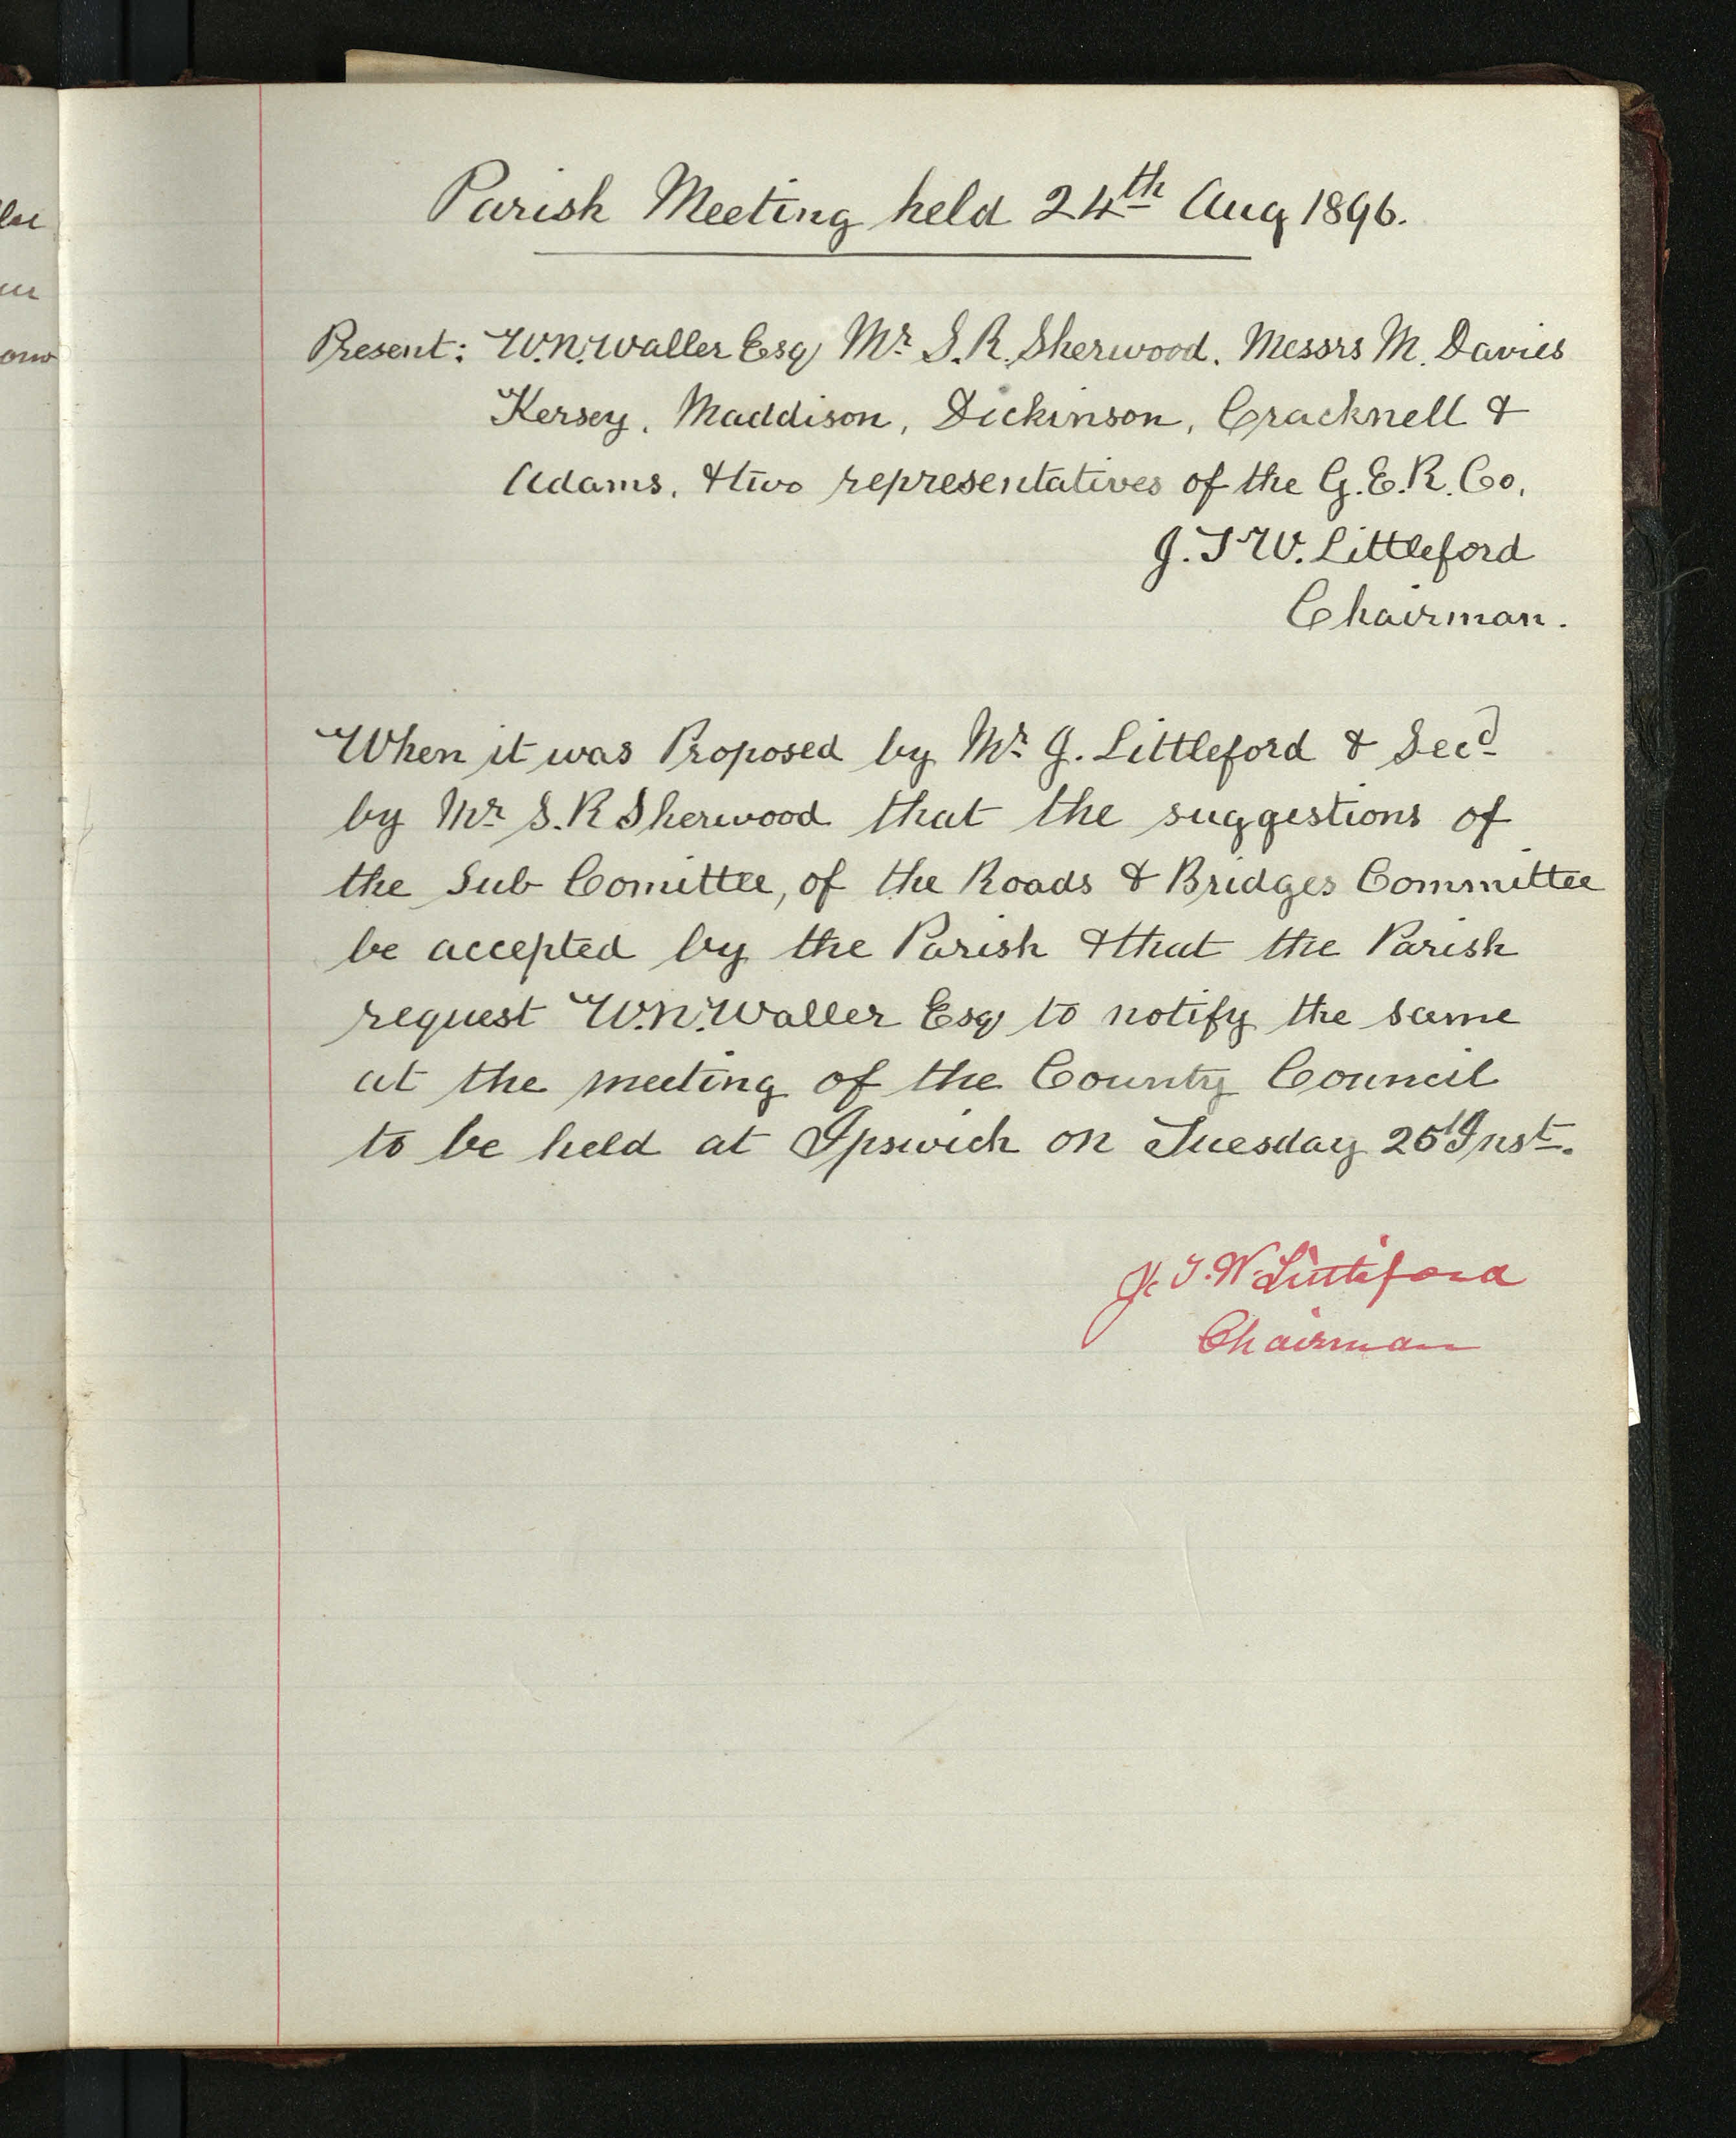 Parish Meeting held 24th Aug 1896.
Present: W.N. Waller Esq Mr S.R. Sherwood. Messrs M. Davies
Kersey, Maddison, Dickinson, Cracknell &
Adams. & two representatives of the G.E.R. Co.
J. T W. Littleford
Chairman.
When it was Proposed by Mr J. Littleford & Secd
by Mr S.R Sherwood that the suggestions of
the Sub Comittee, of the Roads & Bridges Committee
be accepted by the Parish & that the Parish
request W.N. Waller Esq to notify the same
at the meeting of the County Council
to be held at Ipswich on Tuesday 25th Inst.
J. T. W. Littleford
Chairman